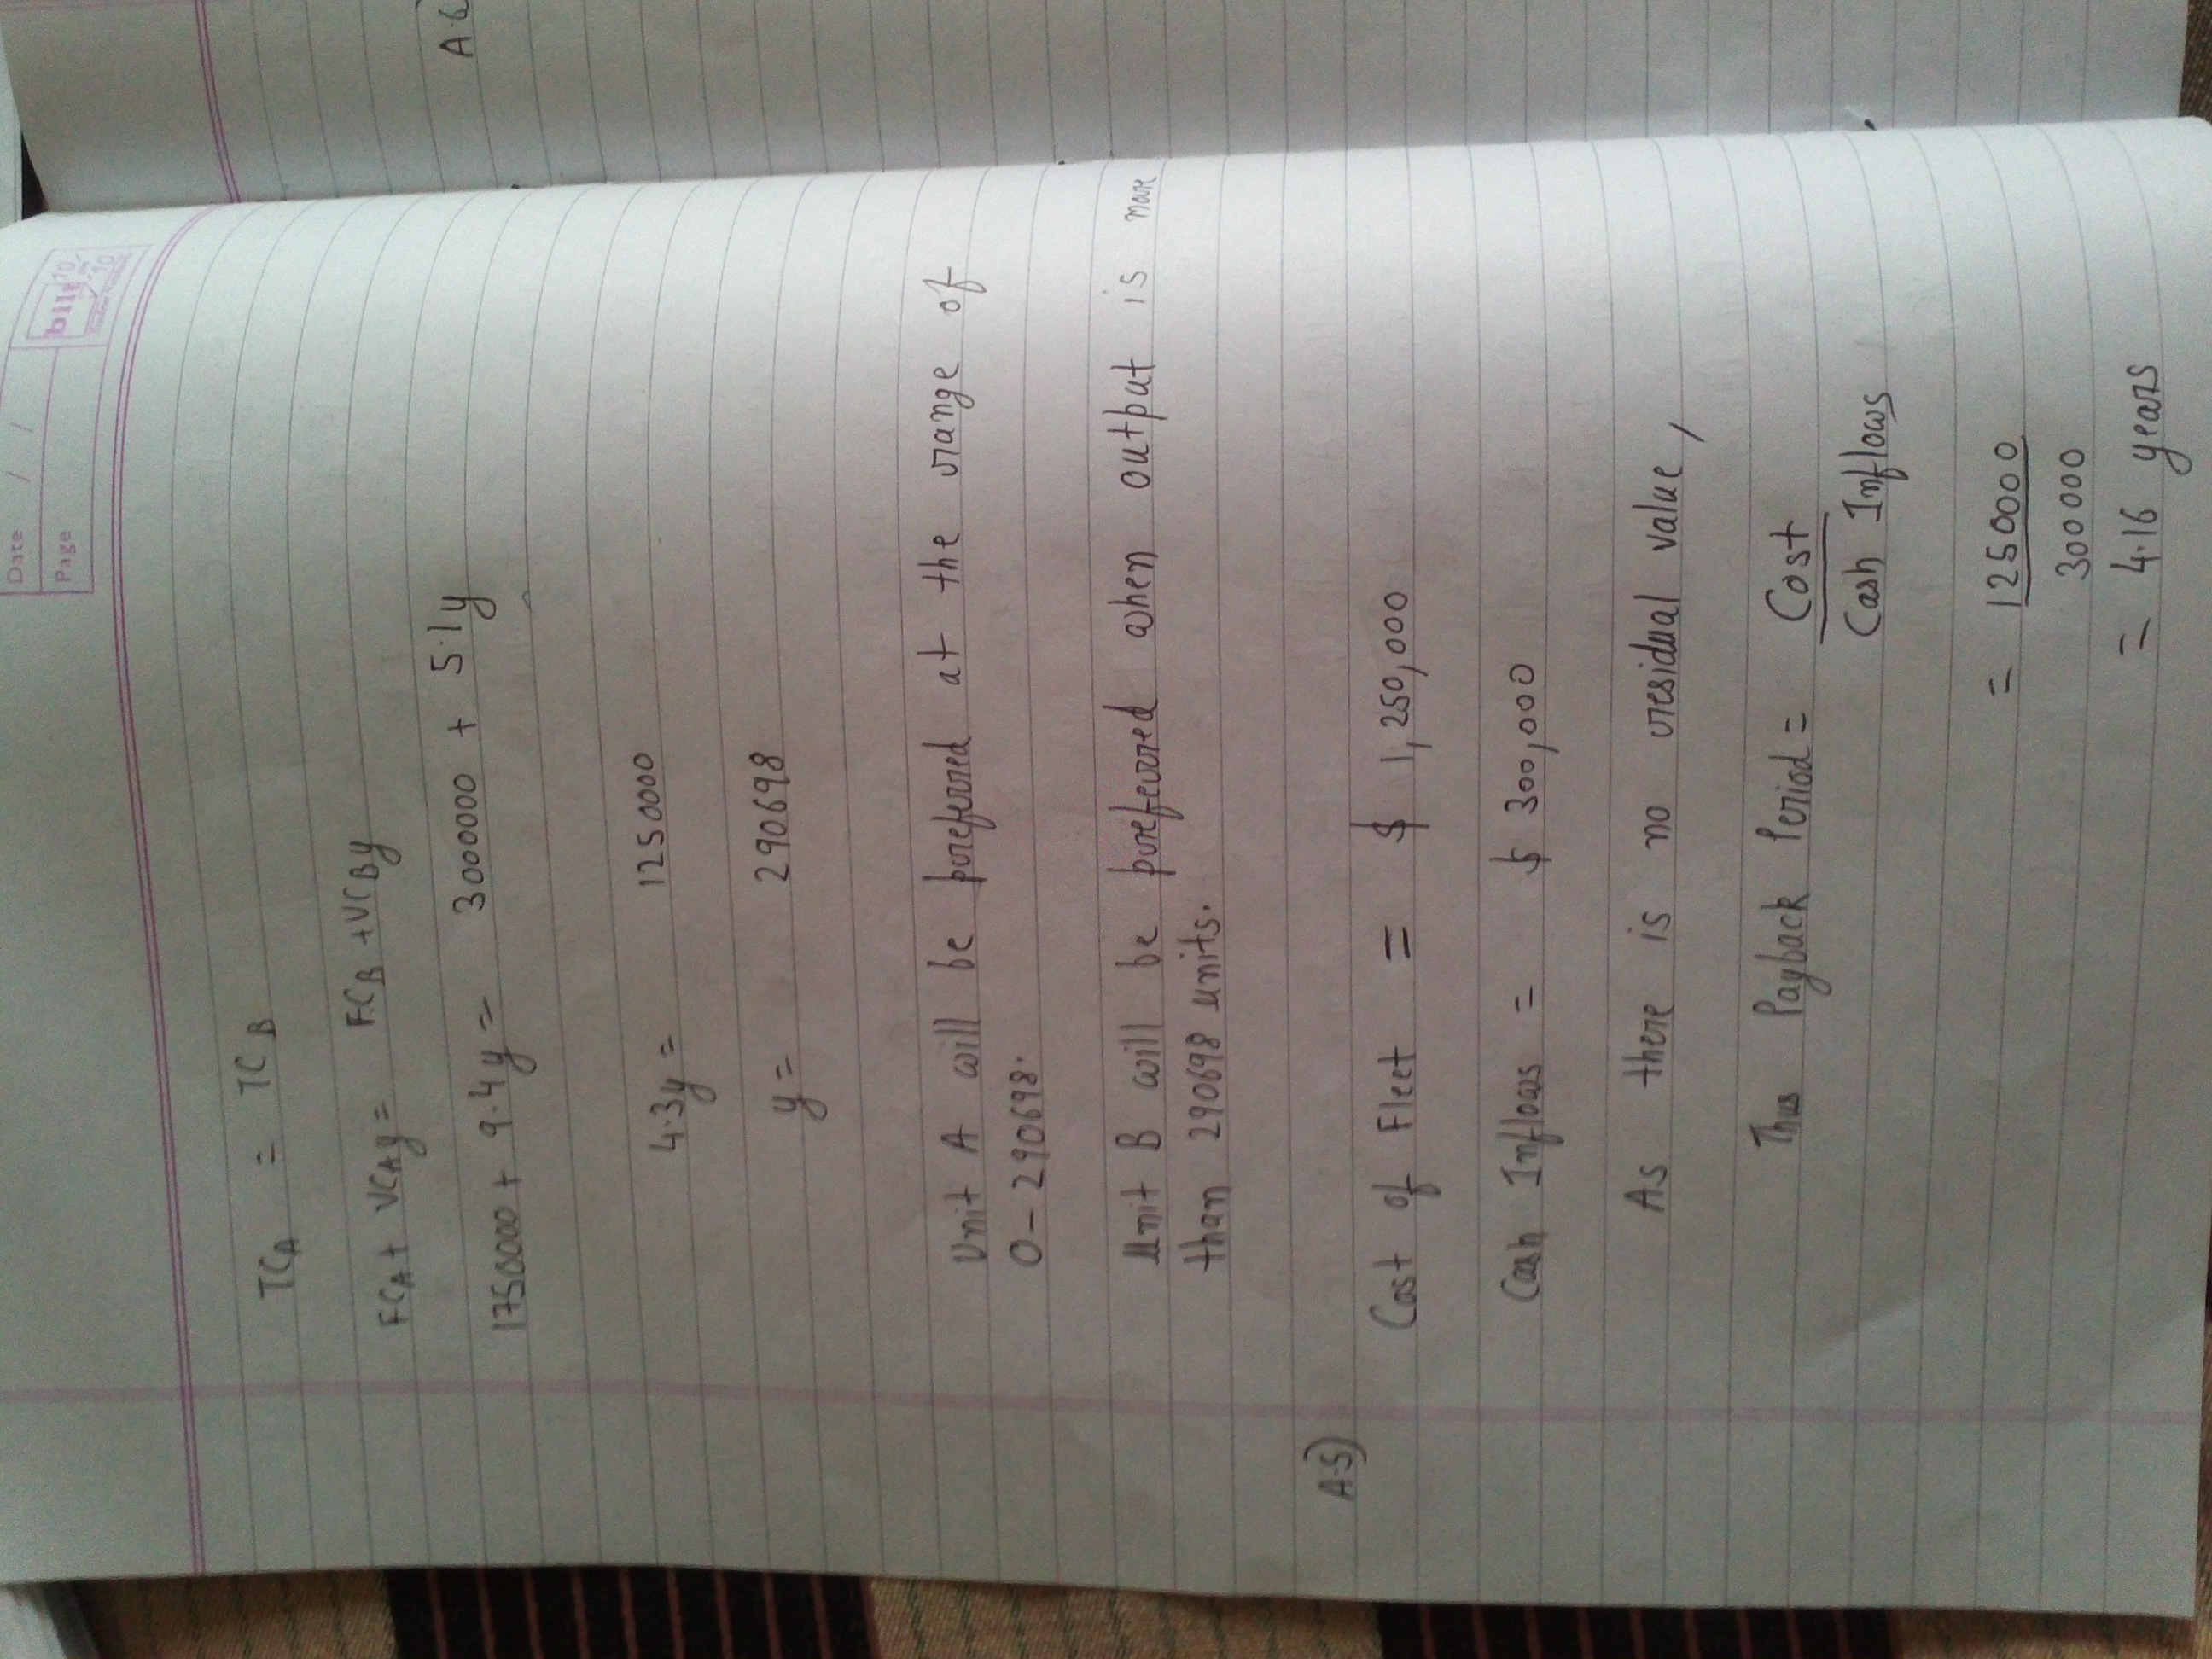 Date / /
Page
bilt
TCA = TCB
FCA + VCAy = FCB + VCBy
1750000 + 9.4y = 3000000 + 5.1y
4.3y = 1250000
y = 290698
Unit A will be preferred at the range of
0 - 290698.
Unit B will be preferred when output is more
than 290698 units.
A.5)
Cost of Fleet = $ 1,250,000
Cash Inflows = $ 300,000
As there is no residual value,
Thus Payback Period = Cost
Cash Inflows
= 1250000
300000
= 4.16 years
A.6